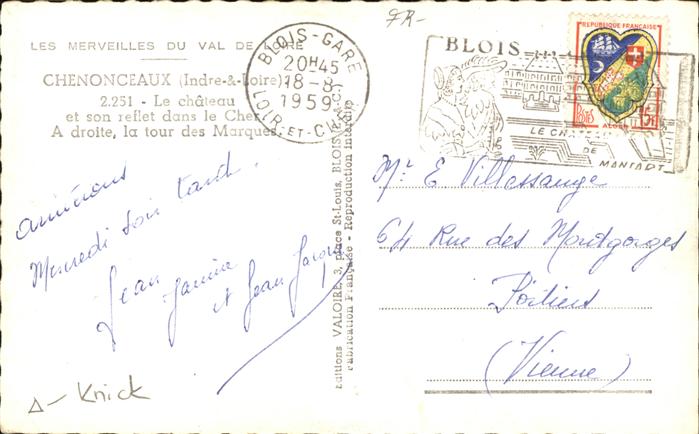 FR-
LES MERVEILLES DU VAL DE LOIRE
CHENONCEAUX (Indre-&-Loire)
2.251 - Le château
et son reflet dans le Cher
A droite, la tour des Marques
BLOIS-GARE
20H45
18-8
1959
LOIR-ET-CHER
BLOIS
LE CHATEAU
DE
REPUBLIQUE FRANÇAISE
POSTES
ALGER
15F
arriverons
Mercredi soir tard.
Jean Janine
et Jean Jacques
Δ- Knick
Editions VALOIRE, 3, place St-Louis, BLOIS
Fabrication Française Reproduction Interdite
Mr E Villessange
64 Rue des Montgorges
Poitiers
(Vienne)